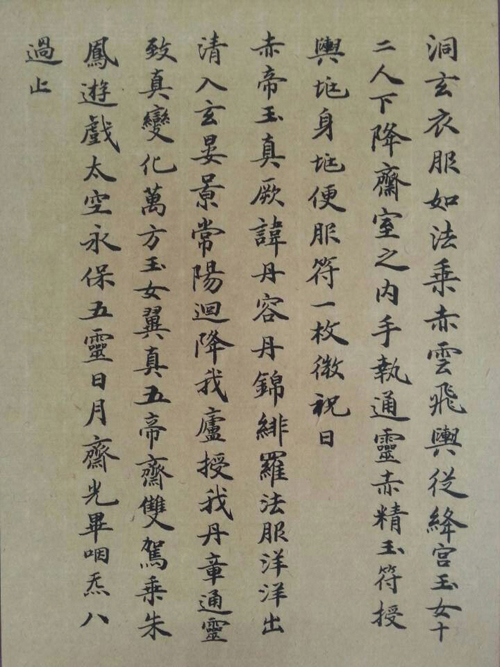 洞玄衣服如法乗赤雲飛輿従絳宮玉女十
二人下降齋室之内手執通靈赤精玉符授
與兆身兆便服符一枚微祝曰
赤帝玉真厥諱丹容丹錦緋羅法服洋洋出
清入玄晏景常陽迴降我廬授我丹章通靈
致真變化萬方玉女翼真五帝齋雙駕乗朱
鳳遊戲太空永保五靈日月齋光畢咽炁八
過止